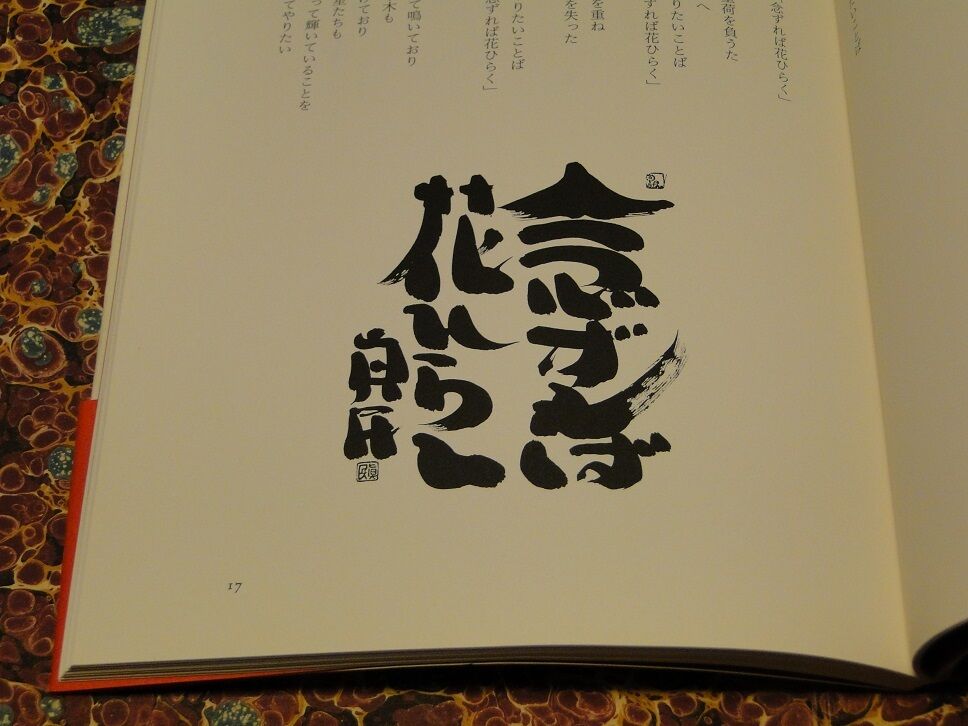 念ずれば花ひらく」
荷を負うた
へ
りたいことば
ずれば花ひらく」
を重ね
を失った
りたいことば
念ずれば花ひらく」
て鳴いており
木も
けており
星たちも
って輝いていることを
てやりたい
念ずれば
花ひらく
真民
17